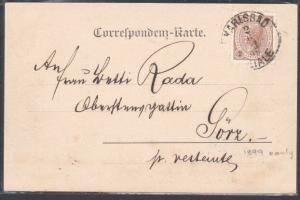 Correspondenz-Karte.
KARLSBAD
An
Frau Betti Rada
Oberstensgattin
Görz.
p. restante
1899 early